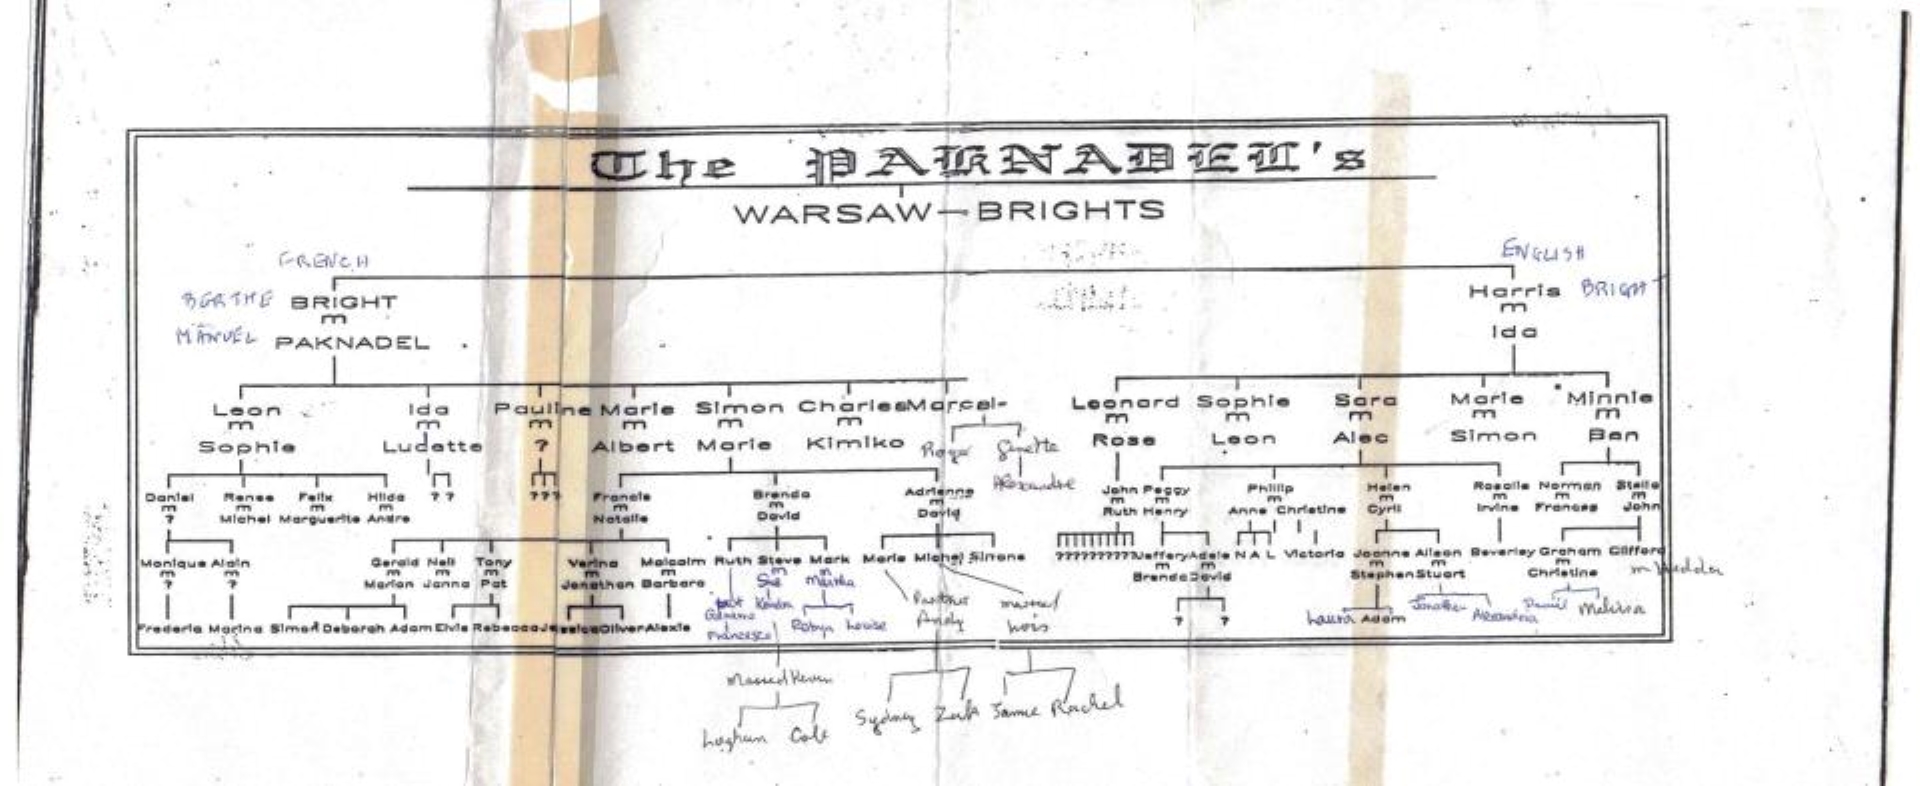 The PAKNADEL's
WARSAW—BRIGHTS
FRENCH ENGLISH
BERTHE BRIGHT Harris BRIGHT
m m
MANUEL PAKNADEL Ida
Leon Ida Pauline Marie Simon Charles Marcel- Leonard Sophie Sara Marie Minnie
m m m m m m m m m m m
Sophie Ludette ? Albert Marie Kimiko Roger Ginette Rose Leon Alec Simon Ben
Alexandre
Daniel Renee Felix Hilda ? ? ??? Francis Brenda Adrienne John Peggy Phillip Helen Rosalie Norman Stella
m m m m m m m m m m m m m
? Michel Marguerite Andre Natalie David David Ruth Henry Anne Christine Cyril Irvine Frances John
Monique Alain Gerald Neil Tony Verina Malcolm Ruth Steve Mark Maria Michel Simone ?????????? Jeffery Adele N A L Victoria Joanne Alison Beverley Graham Clifford
m m m m m m m m m m m m m m m
? ? Marion Janna Pat Jonathan Barbara Sue Martha Brenda David Stephen Stuart Christine
Frederic Marina Simon Deborah Adam Elvis Rebecca Jessica Oliver Alexie Francesca Robyn Louise Partner Andy married ? ? Laura Adam Jonathan Alexandria Daniel Melissa
Married Keven
Sydney Zack Jamie Rachel
Colt